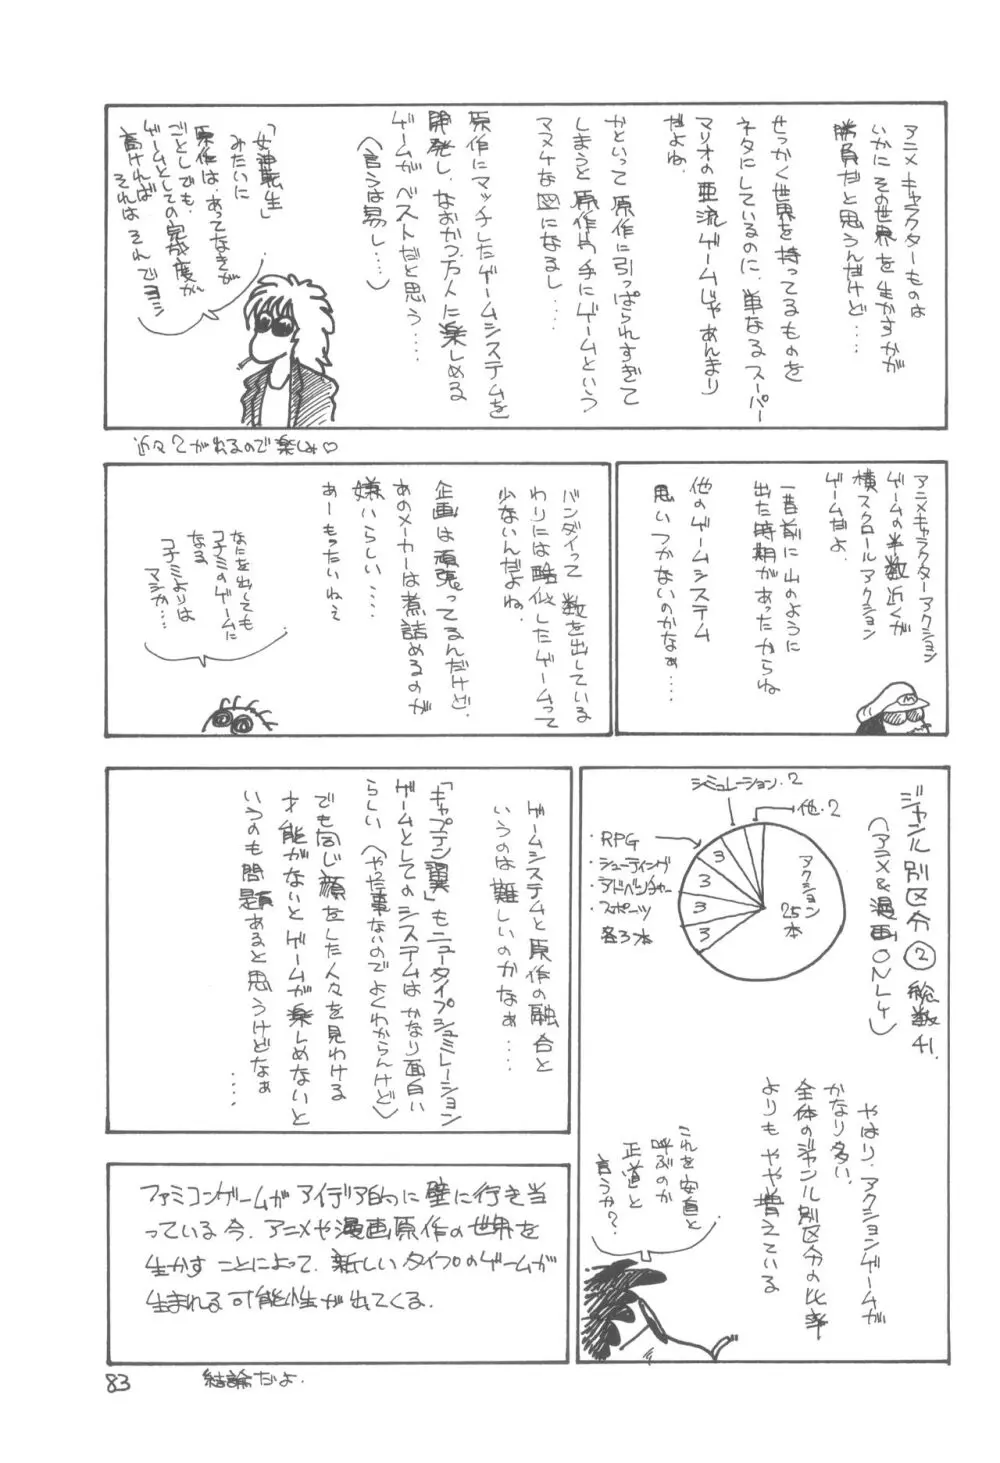 アニメキャラクターものは
いかにその世界を生かすかが
勝負だと思うんだけど……
せっかく世界を持ってるものを
ネタにしているのに、単なるスーパー
マリオの亜流ゲームじゃあんまり
だよね。
かといって原作に引っぱられすぎて
しまうと原作やる手にゲームという
マヌケな図になるし……
原作にマッチしたゲームシステムを
開発し、なおかつ万人に楽しめる
ゲームがベストだと思う……
(言うは易し……)
「女神転生」
みたいに
原作は、あってなきが
ごとしでも、
ゲームとしての完成度が
高ければ
それは それでヨシ
近々2が出るので楽しみ♡
アニメキャラクターアクション
ゲームの半数近くが
横スクロールアクション
ゲームだよ。
一昔前に山のように
出た時期があったからね
他のゲームシステム
思いつかないのかなぁ……
バンダイって 数を出している
わりには酷似したゲームって
少ないんだよね。
企画は頑張ってるんだけど、
あのメーカーは煮詰めるのが
嫌いらしい……
あーもったいねぇ
なにを出しても
コナミのゲームに
なる
コナミよりは
マシか……
ジャンル別区分② 総数41.
(アニメ&漫画ONLY)
シミュレーション・2
他・2
・RPG
・シューティング
・アドベンチャー
・スポーツ
各3本
3
3
3
3
アクション
25本
やはり、アクションゲームが
かなり多い、
全体のジャンル別区分の比率
よりも やや増えている
これを安直と
呼ぶのか
正道と
言うか?
ゲームシステムと原作の融合と
いうのは難しいのかなぁ……
「キャプテン翼」もニュータイプシュミレーション
ゲームとしてのシステムは かなり面白い
らしい(やった事ないのでよくわからんけど)
でも同じ顔をした人々を見わける
才能がないとゲームが楽しめないと
いうのも問題あると思うけどなぁ
……
ファミコンゲームが アイデア的に壁に行き当
っている今、アニメや漫画原作の世界を
生かすことによって、新しいタイプのゲームが
生まれる可能性が出てくる.
結論だよ.
83